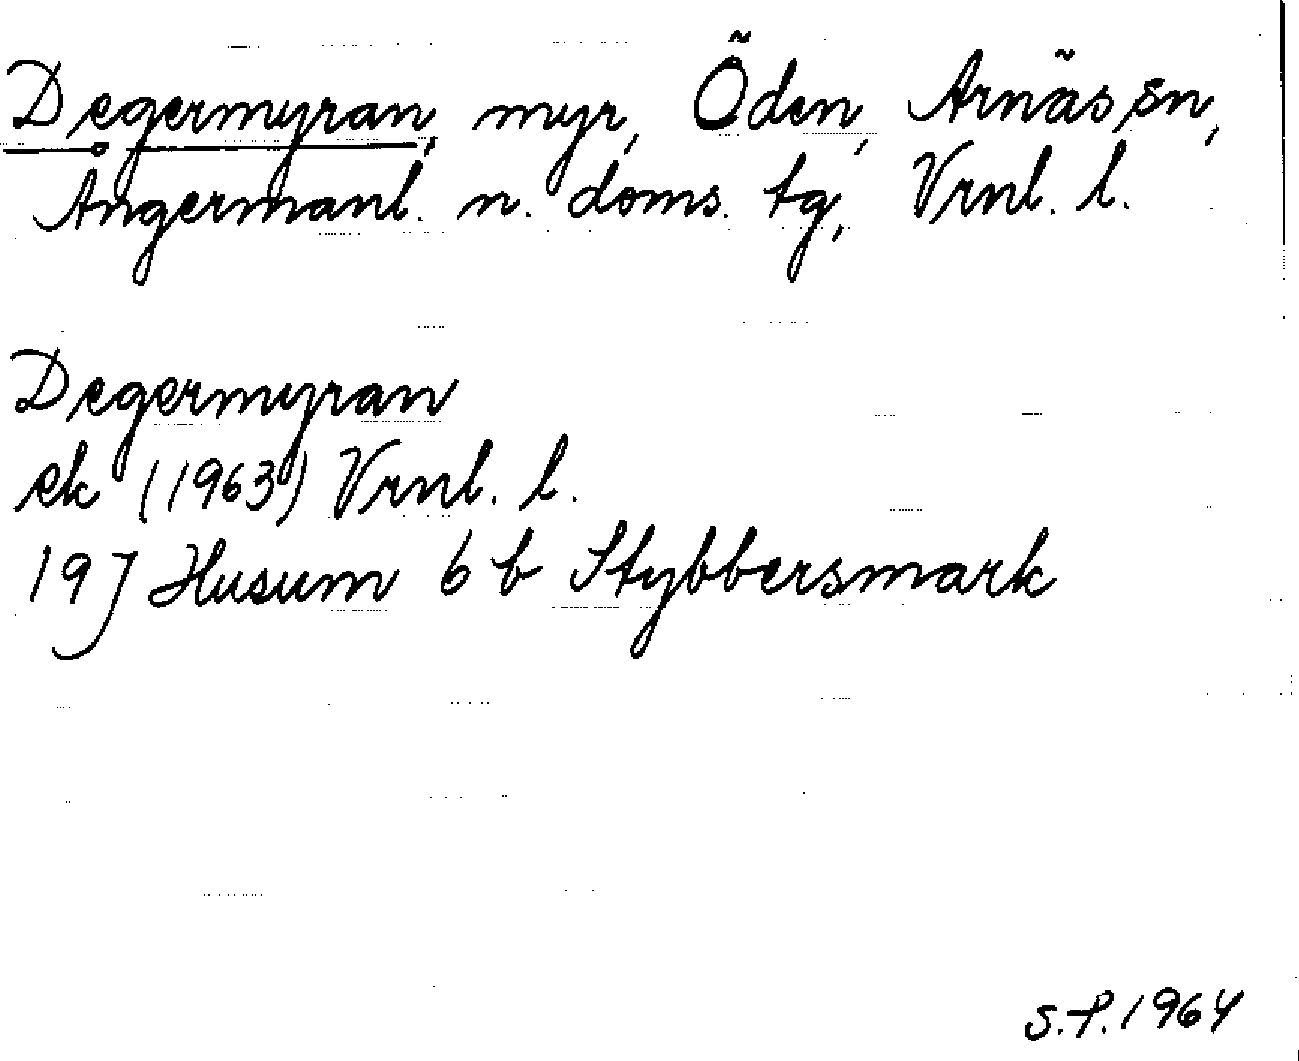 Degermyran, myr, Öden, Arnäs sn,
Ångermanl. n. doms. tg, Vrnl. l.
Degermyran
ek (1963) Vrnl. l.
19J Husum 6 b Stybbersmark
S.P. 1964